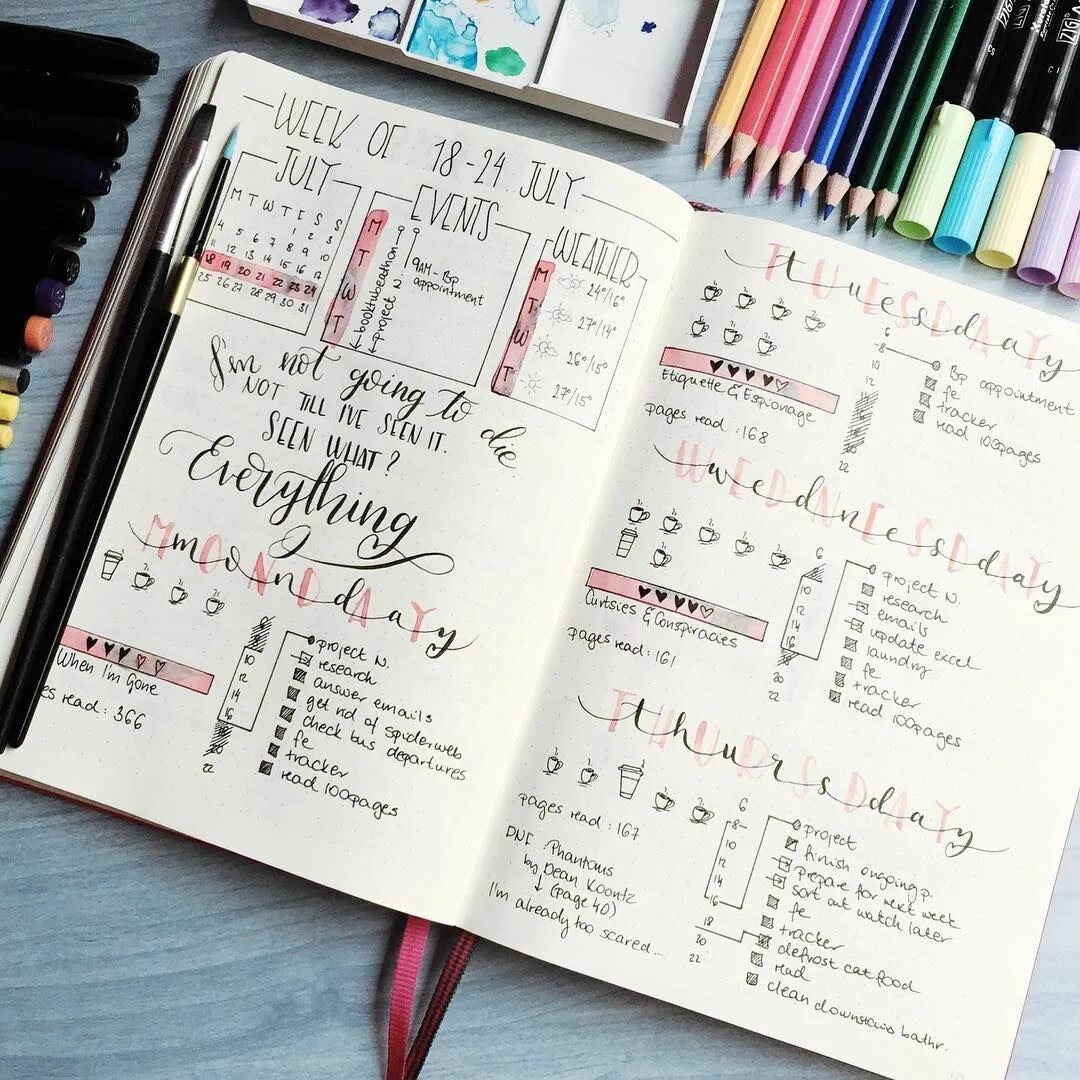 WEEK OF 18-24. JULY
JULY
M T W T F S S
1 2 3
4 5 6 7 8 9 10
11 12 13 14 15 16 17
18 19 20 21 22 23 24
25 26 27 28 29 30 31
EVENTS
M
T
W
T
booktubeathon
project 2
9AM - Bp
appointment
WEATHER
M 24°/16°
T 27°/14°
W 26°/15°
T 27°/15°
I'm not going to die.
NOT TILL I'VE SEEN IT.
SEEN WHAT?
Everything
MONDAY
monday
When I'm Gone
es read: 366
8
10
12
14
16
20
22
project N.
research
answer emails
get rid of spiderweb
check bus departures
fe
tracker
read 100pages
TUESDAY
tuesday
Etiquette & Espionage
pages read: 168
6
8
10
12
20
22
Bp appointment
fe
tracker
read 100pages
WEDNESDAY
wednesday
Curtsies & Conspiracies
pages read: 161
6
10
12
14
16
20
22
project N.
research
emails
update excel
laundry
fe
tracker
read 100pages
THURSDAY
thursday
pages read: 167
DNF: Phantoms
by Dean Koontz
(page 40)
I'm already too scared...
6
8
10
12
14
16
18
20
22
project
finish ongoing p.
prepare for next week
sort out watch later
fe
tracker
defrost cat food
read
clean downstairs bathr.
ZIG